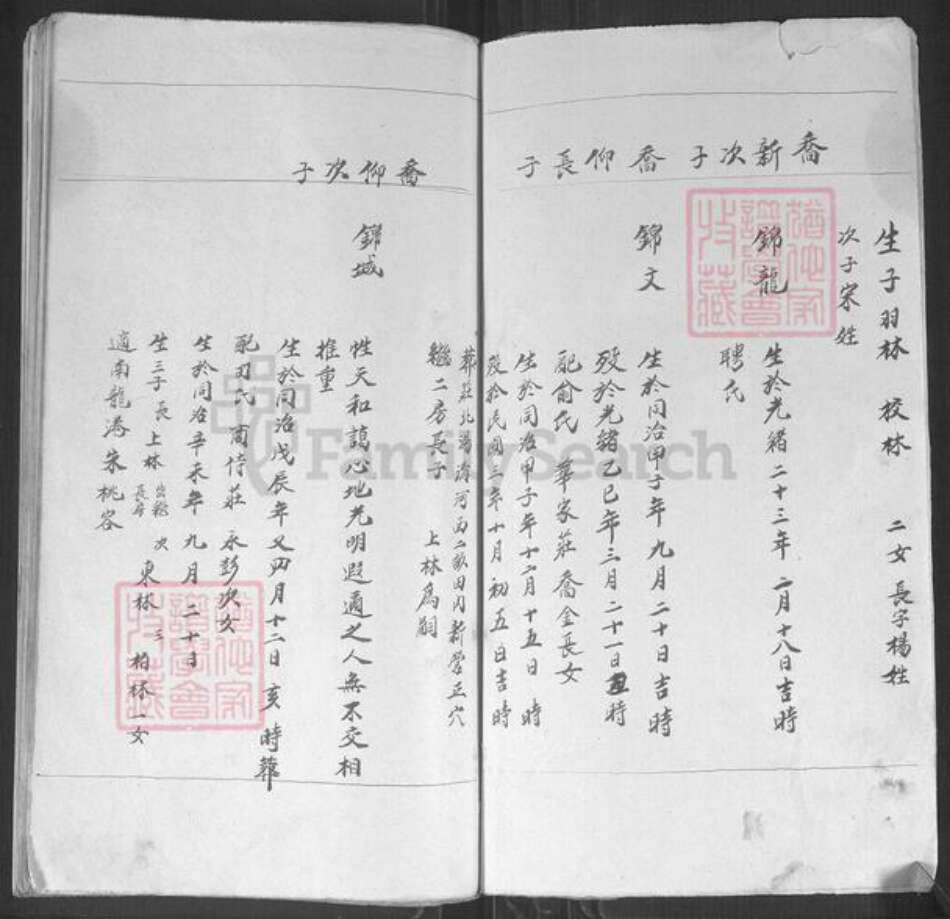 生子羽林 校林 二女長字楊姓
次子宋姓
喬新次子
錦龍
生於光緒二十三年二月十八日吉時
聘氏
喬仰長子
錦文
生於同治甲子年九月二十日吉時
歿於光緒乙巳年三月二十一日時
配俞氏 華家莊喬金長女
生於同治甲子年十二月十五日 時
歿於民國三年十月初五日吉時
葬莊北 河西二畝田內新營正穴
繼二房長子 上林為嗣
喬仰次子
錦城
性天和藹心地光明遐邇之人無不交相
推重
生於同治戊辰年又四月十二日亥時葬
配刁氏 莊 永彭次女
生於同治辛未年九月二十日
生三子長上林出繼長房 次東林 三柏林一女
適南龍港朱桃容
猶他家譜學會收藏
猶他家譜學會收藏
FamilySearch